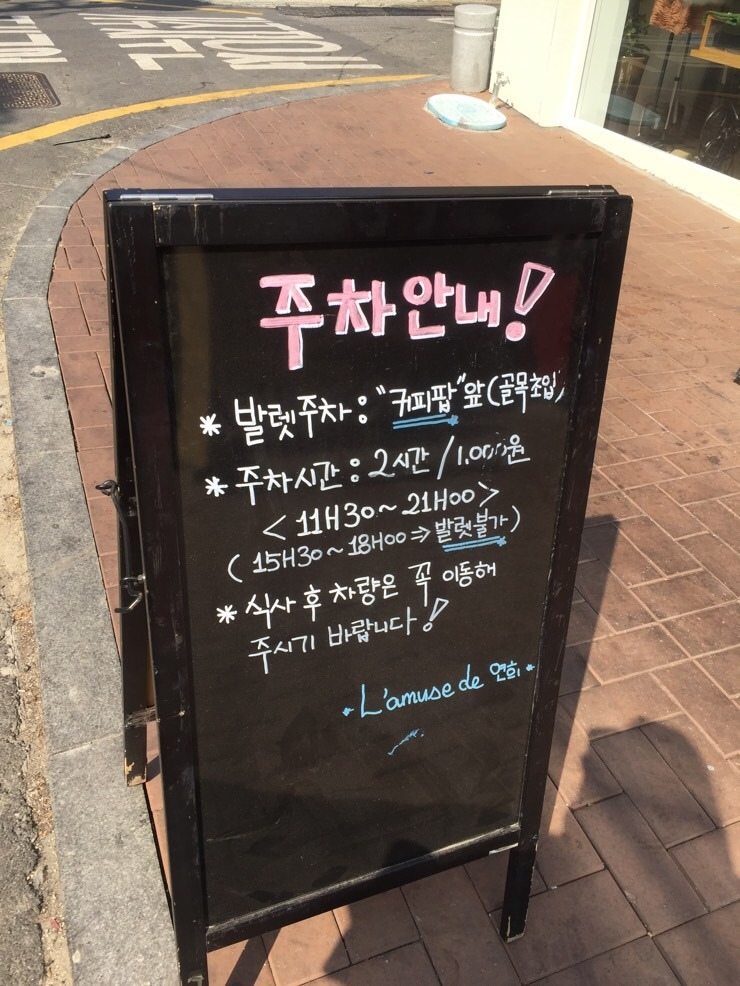 주차안내!
* 발렛주차 : "커피팝"앞(골목초입)
* 주차시간 : 2시간 / 1.000원
< 11H30 ~ 21H00 >
( 15H30 ~ 18H00 ⇒ 발렛불가 )
* 식사 후 차량은 꼭 이동해
주시기 바랍니다!
L'amuse de 연희